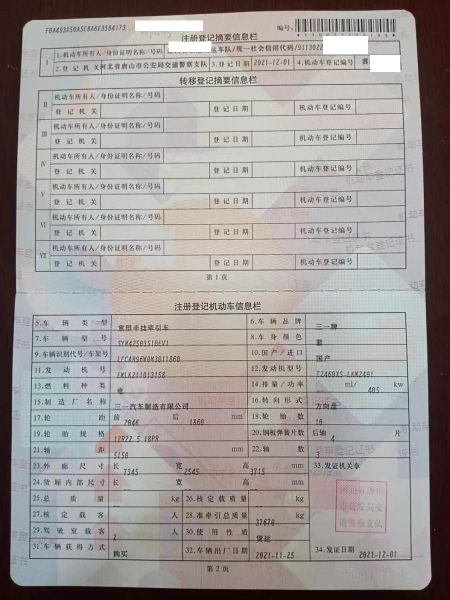 注册登记摘要信息栏
编号:
1.机动车所有人/身份证明名称/号码 运车队/统一社会信用代码/9113022
I 2.登记机关 河北省唐山市公安局交通警察支队 3.登记日期 2021-12-01 4.机动车登记编号 冀
转移登记摘要信息栏
II 机动车所有人/身份证明名称/号码
登记机关 登记日期 机动车登记编号
III 机动车所有人/身份证明名称/号码
登记机关 登记日期 机动车登记编号
IV 机动车所有人/身份证明名称/号码
登记机关 登记日期 机动车登记编号
V 机动车所有人/身份证明名称/号码
登记机关 登记日期 机动车登记编号
VI 机动车所有人/身份证明名称/号码
登记机关 登记日期 机动车登记编号
VII 机动车所有人/身份证明名称/号码
登记机关 登记日期 机动车登记编号
第1页
注册登记机动车信息栏
5.车辆类型 重型半挂牵引车 6.车辆品牌 三一牌
7.车辆型号 8.车身颜色 蓝
9.车辆识别代号/车架号 10.国产/进口 国产
11.发动机号 12.发动机型号
13.燃料种类 电 14.排量/功率 ml/ 405 kw
15.制造厂名称 三一汽车制造有限公司 16.转向形式 方向盘
17.轮距 前 2048 后 1860 mm 18.轮胎数 10
19.轮胎规格 12R22.5 18PR 20.钢板弹簧片数 后轴 4 片
21.轴距 5150 mm 22.轴数 3
23.外廓尺寸 长 7345 宽 2545 高 3715 mm 33.发证机关章
24.货厢内部尺寸 长 宽 高 mm
25.总质量 kg 26.核定载质量 kg
27.核定载客 人 28.准牵引总质量 37670 kg
29.驾驶室载客 2 人 30.使用性质 货运
31.车辆获得方式 购买 32.车辆出厂日期 2021-11-25 34.发证日期 2021-12-01
第2页